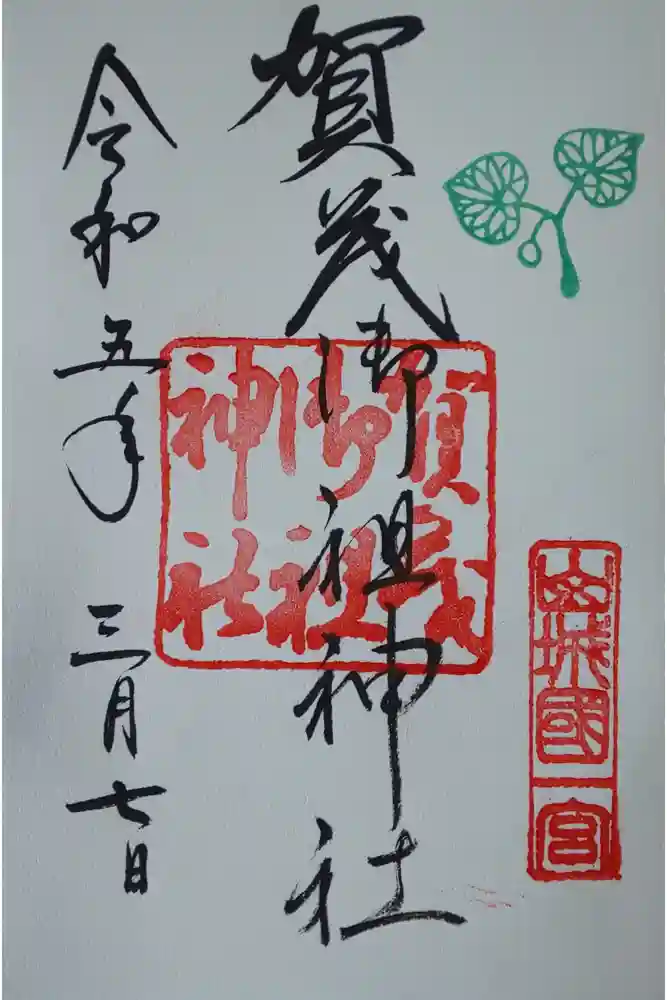 山城國一宮
賀茂御祖神社
賀茂御祖神社
令和五年 三月七日